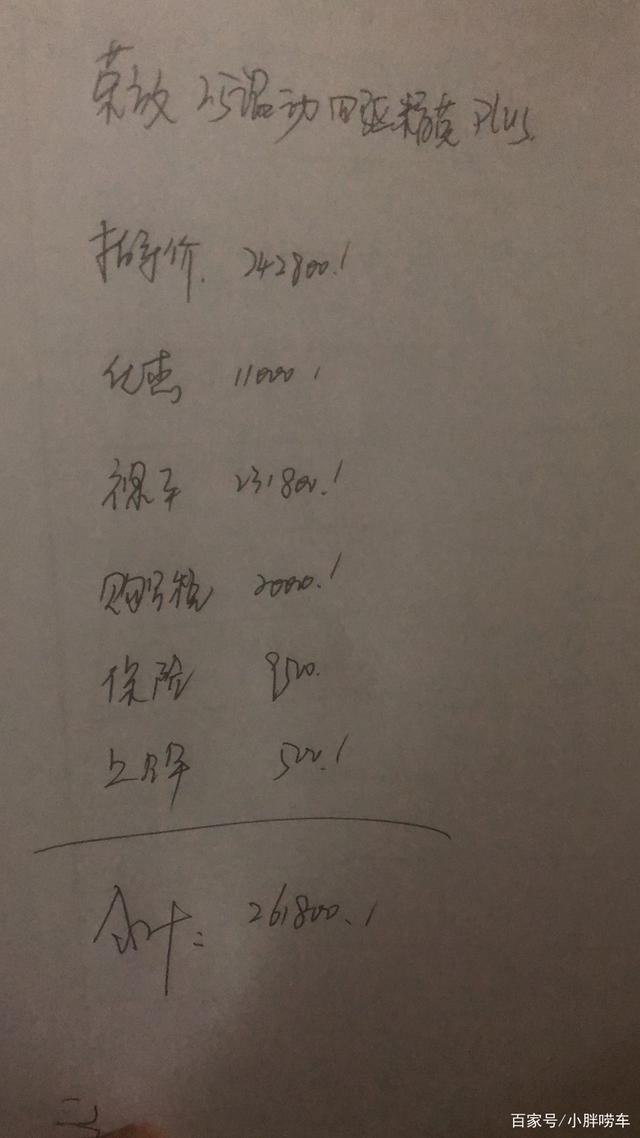 荣放 2.5混动四驱精英Plus
指导价 242800.1
优惠 11000.1
裸车 231800.1
购置税 2000.1
保险 9500.
上牌 500.1
合计: 261800.1
百家号/小胖唠车